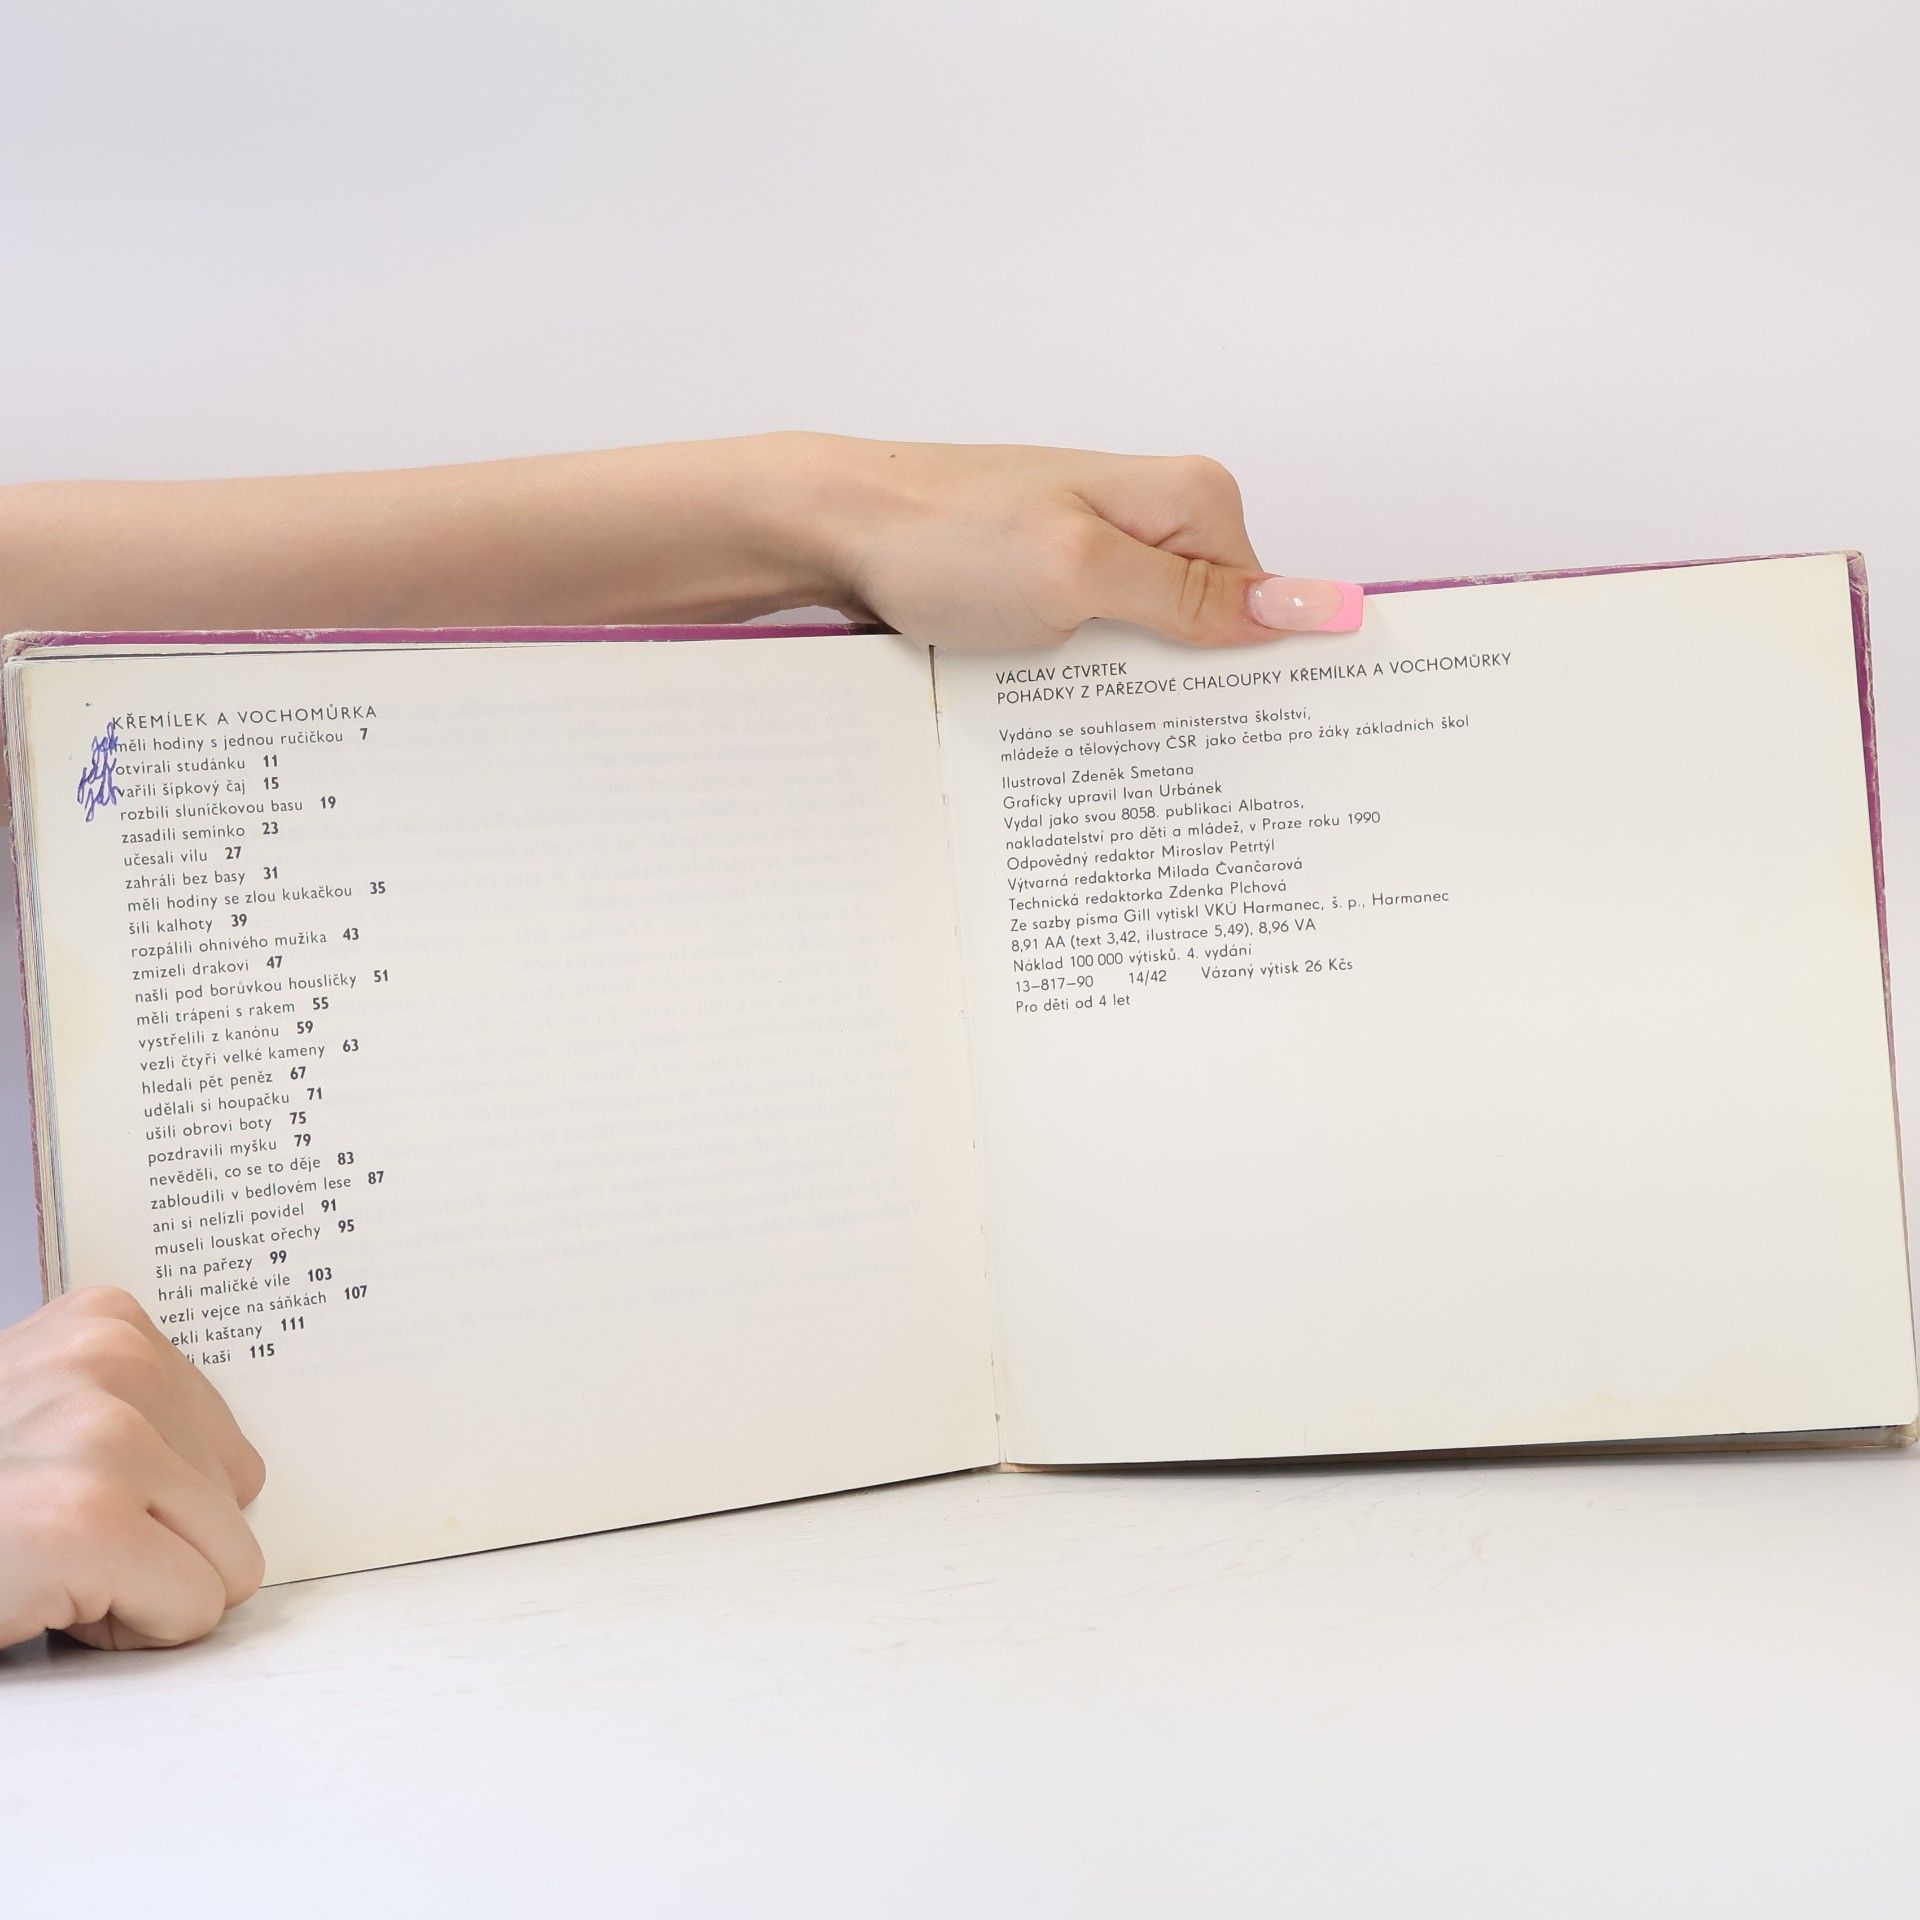 KŘEMÍLEK A VOCHOMŮRKA
jak měli hodiny s jednou ručičkou 7
jak otvírali studánku 11
jak vařili šípkový čaj 15
rozbili sluníčkovou basu 19
zasadili semínko 23
učesali vílu 27
zahráli bez basy 31
měli hodiny se zlou kukačkou 35
šili kalhoty 39
rozpálili ohnivého mužíka 43
zmizeli drakovi 47
našli pod borůvkou housličky 51
měli trápení s rakem 55
vystřelili z kanónu 59
vezli čtyři velké kameny 63
hledali pět peněz 67
udělali si houpačku 71
ušili obrovi boty 75
pozdravili myšku 79
nevěděli, co se to děje 83
zabloudili v bedlovém lese 87
ani si nelízli povidel 91
museli louskat ořechy 95
šli na pařezy 99
hráli maličké víle 103
vezli vejce na sáňkách 107
ekli kaštany 111
kaši 115
VÁCLAV ČTVRTEK
POHÁDKY Z PAŘEZOVÉ CHALOUPKY KŘEMÍLKA A VOCHOMŮRKY
Vydáno se souhlasem ministerstva školství,
mládeže a tělovýchovy ČSR jako četba pro žáky základních škol
Ilustroval Zdeněk Smetana
Graficky upravil Ivan Urbánek
Vydal jako svou 8058. publikaci Albatros,
nakladatelství pro děti a mládež, v Praze roku 1990
Odpovědný redaktor Miroslav Petrtýl
Výtvarná redaktorka Milada Čvančarová
Technická redaktorka Zdenka Plchová
Ze sazby písma Gill vytiskl VKÚ Harmanec, š. p., Harmanec
8,91 AA (text 3,42, ilustrace 5,49), 8,96 VA
Náklad 100 000 výtisků. 4. vydání
13–817–90 14/42 Vázaný výtisk 26 Kčs
Pro děti od 4 let